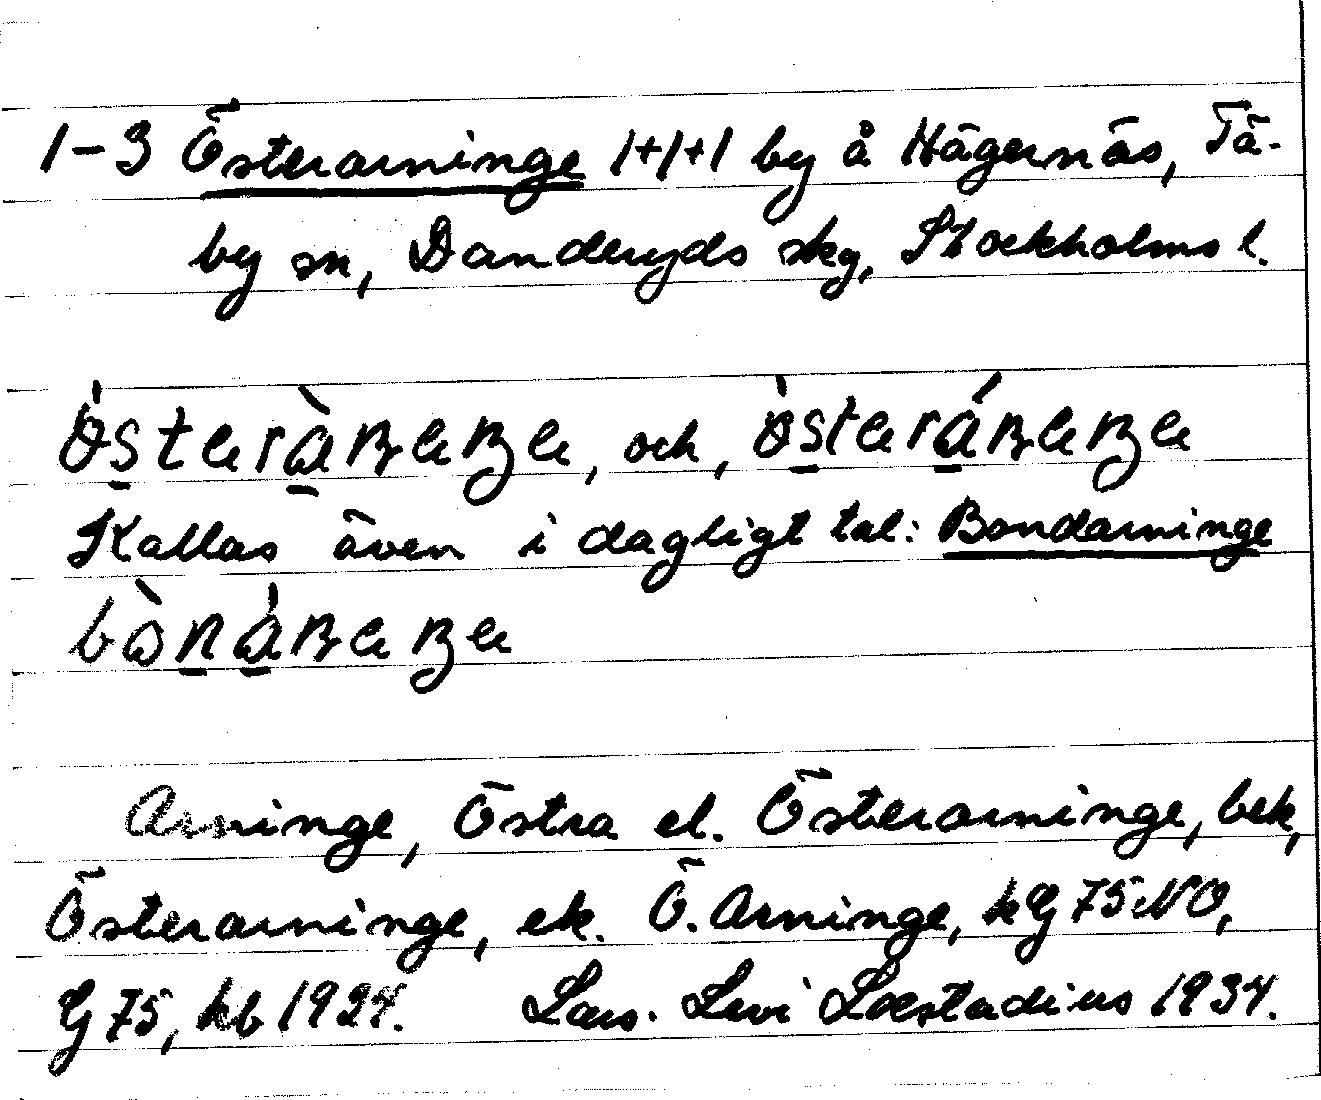 1-3 Österarninge 1+1+1 by å Hägernäs, Tä-
by sn, Danderyds skg, Stockholms l.
, och,
Kallas även i dagligt tal: Bondarninge
Arninge, Östra el. Österarninge, bek,
Österarninge, ek. Ö. Arninge, kG 75 NO,
G 75, kb 1924. Lars. Levi Læstadius 1934.